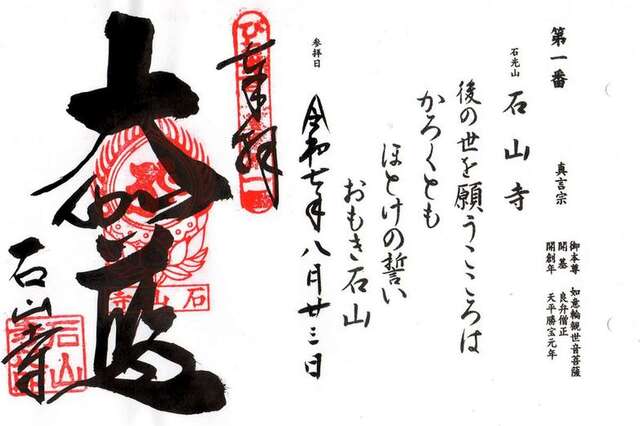 第一番 真言宗
御本尊 如意輪観世音菩薩
開基 良弁僧正
開創年 天平勝宝元年
石光山 石山寺
後の世を願うこころは
かろくとも
ほとけの誓い
おもき石山
参拝日
令和七年八月廿三日
奉拝
大伽藍
石山寺
石山寺